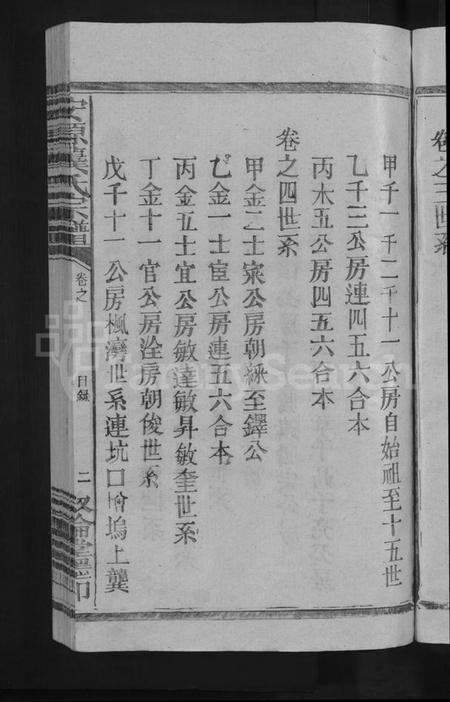 卷之三世系
甲千一千二千十一公房自始祖至十五世
乙千三公房連四五六合本
丙木五公房四五六合本
卷之四世系
甲金二士寀公房朝綝至鐸公
乙金一士宦公房連五六合本
丙金五士宜公房敏達敏昇敏奎世系
丁金十一官公房洤房朝俊世系
戊千十一公房楓灣世系連坑口曾塢上龔
龔氏宗譜
卷之
目錄
二
敘倫堂